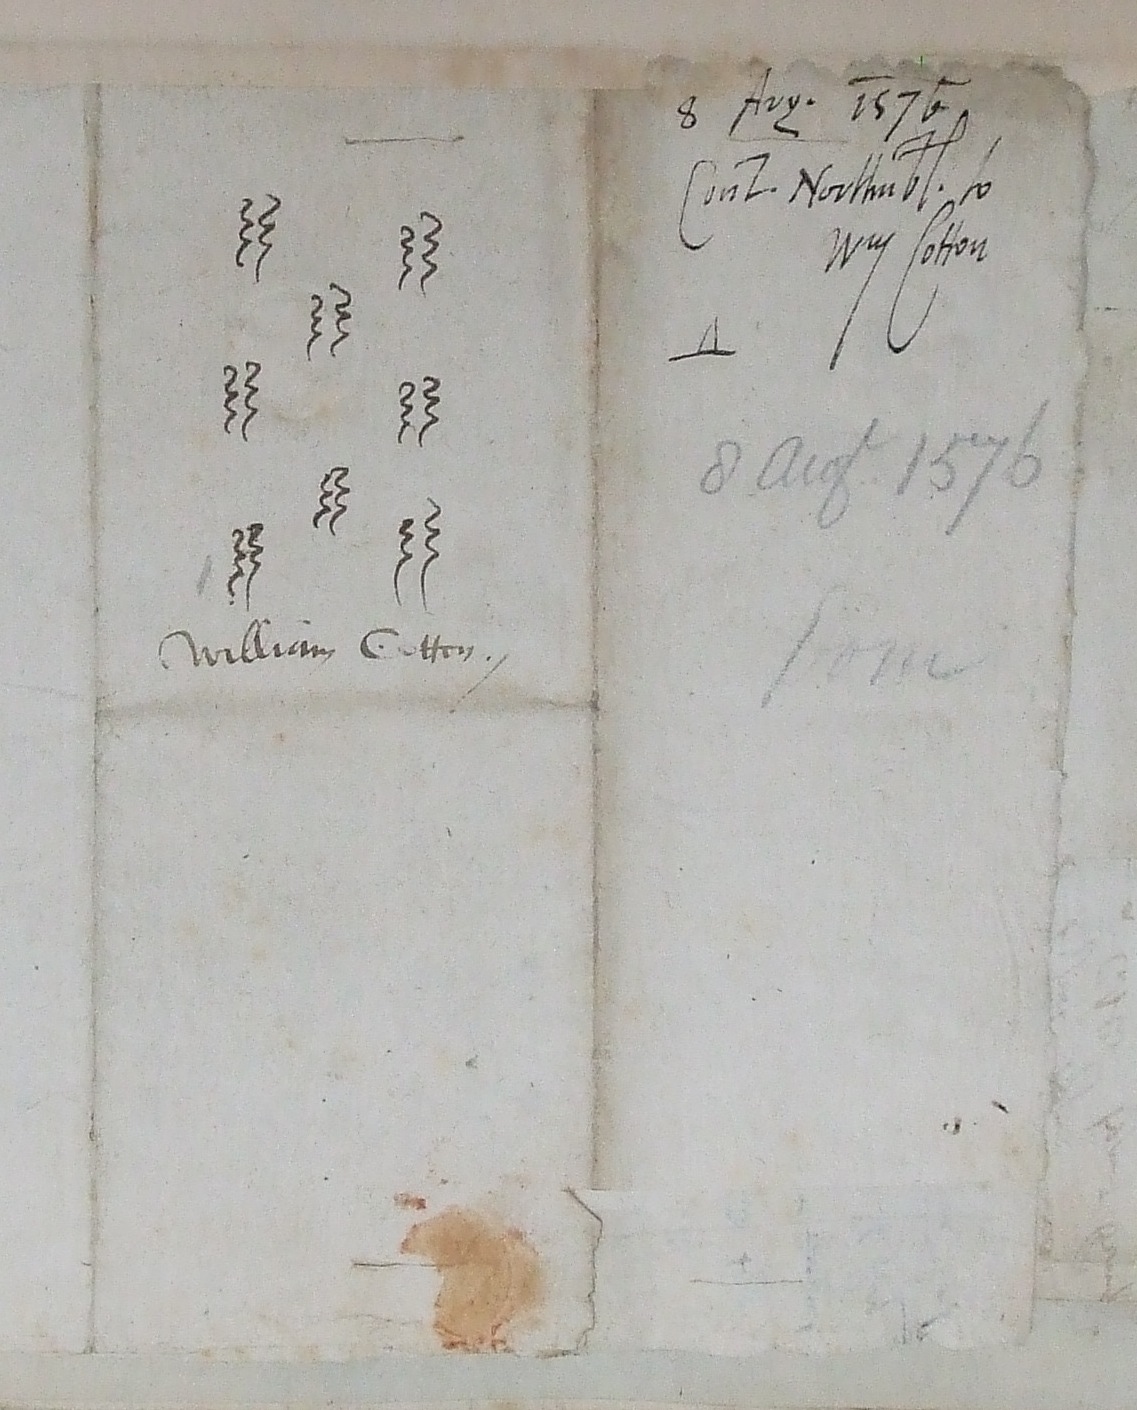 William Cotton.
8 Aug. 1576
Count. Northubl. to
Wm Cotton
8 Augt. 1576